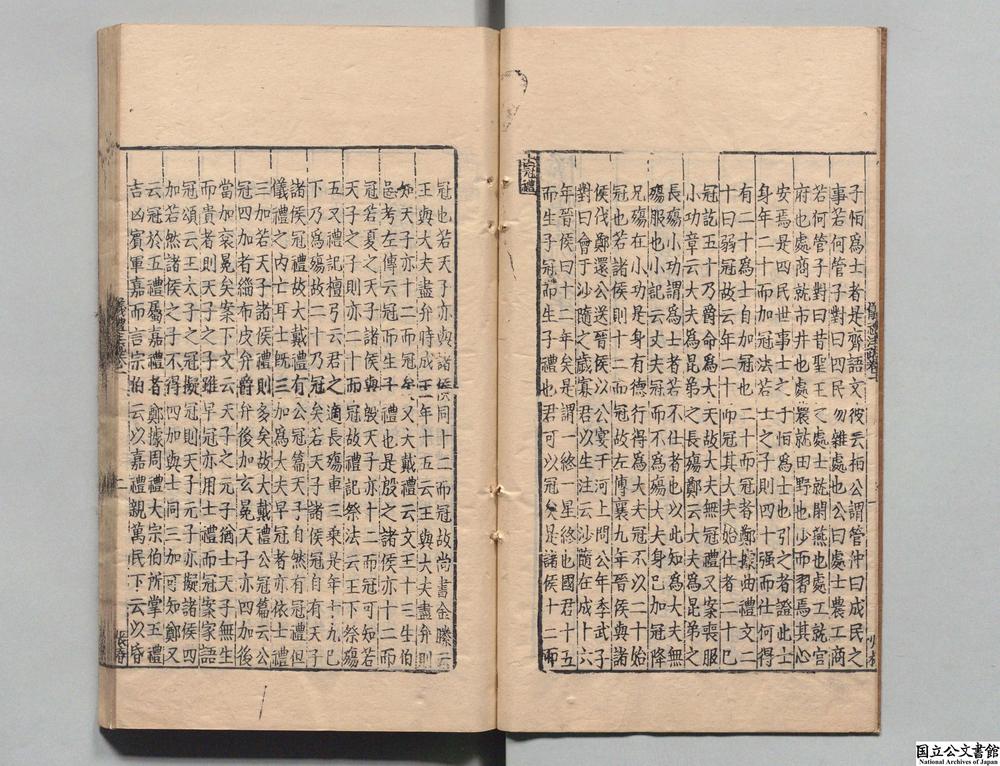 子恒爲士者是齊語文彼云桓公謂管仲曰成民之
事若何管子對曰四民勿雜處也公曰處士農工商
若何管子對曰昔聖王之處士就閑燕也處工就官
府也處商就市井也處農就田野也少而習焉其心
安焉是四民世事士之子恒爲士也引之者證此士
身年二十而加冠法若士之子則四十强而仕何得
有二十爲士自加冠也二十而冠者鄭據曲禮文二
十曰弱冠故云年二十而冠其大夫始仕者二十已
冠訖五十乃爵命爲大夫故大夫無冠禮又案喪服
小功章云大夫爲昆弟之長殤鄭云大夫爲昆弟之
長殤小功謂爲士者若不仕者也以此知爲大夫無
殤服也小記云丈夫冠而不爲殤大夫身已加冠降
兄殤在小功是身有德行得爲大夫冠不以二十始
冠也若諸侯則十二而冠故左傳襄九年晉侯與諸
侯伐鄭還公送晉侯以公宴于河上問公年季武子
對曰會于沙隨之歲寡君以生注云沙隨在成十六
年晉侯曰十二年矣是謂一終一星終也國君十五
而生子冠而生子禮也君可以冠矣是諸侯十二而
士冠禮
冠也若天子亦與諸侯同十二而冠故尚書金縢云
王與大夫盡弁時成王年十五云王與大夫盡弁則
知天子亦十二而冠矣又大戴禮云文王十三生伯
邑考左傳云冠而生子禮也是殷之諸侯亦十二而
冠若夏之天子諸侯與殷天子亦十二而冠可知若
天子之子則亦二十而冠故禮記祭法云王下祭殤
五又禮記檀弓云君之適長殤車三乘是年十九已
下乃爲殤故二十乃冠矣若天子諸侯冠自有天子
諸侯冠禮故大戴禮有公冠篇天子自然有冠禮但
儀禮之内亡耳士旣三加爲大夫早冠者亦依士禮
三加若天子諸侯禮則多矣故大戴禮公冠篇云公
冠四加者緇布皮弁爵弁後加玄冕天子亦四加後
當加衮冕矣案下文云天子之元子猶士天子無生
而貴者則天子之子雖早冠亦用士禮而冠案家語
冠頌云王太子之冠擬冠則天子元子亦擬諸侯四
加若然諸侯之子不得四加與士同三加可知鄭又
云冠於五禮屬嘉禮者鄭據周禮大宗伯所掌五禮
吉凶賓軍嘉而言宗伯云以嘉禮親萬民下云以昏
国立公文書館
National Archives of Japan